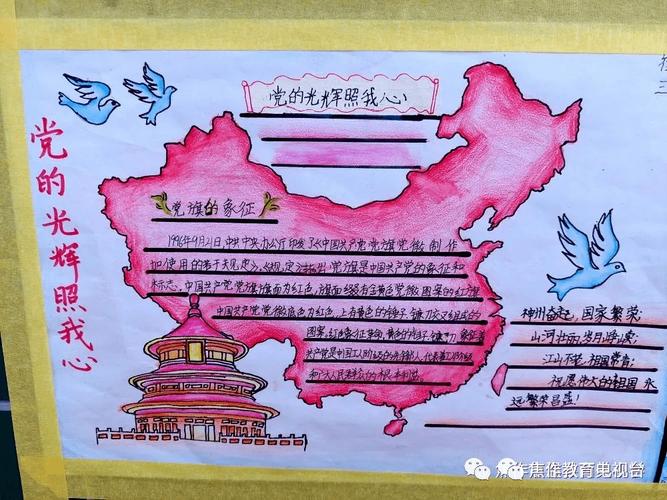 党的光辉照我心
党的光辉照我心
党旗的象征
1996年9月21日中共中央办公厅印发了《中国共产党党旗党徽制作
和使用的若干规定》,《规定》指出 党旗是中国共产党的象征和
标志。中国共产党党旗旗面为红色,旗面缀有金黄色党徽图案的红旗
中国共产党党徽底色为红色,上有黄色的锤子镰刀交叉组成的
图案,红色象征革命,黄色的锤子,镰刀 象征着
共产党是中国工人阶级的先锋队,代表着工人阶级
和广大人民群众的根本利益。
神州奋起,国家繁荣;
山河壮丽,岁月峥嵘;
江山不老,祖国常青;
祝愿伟大的祖国永
远繁荣昌盛!
三
焦作教育电视台